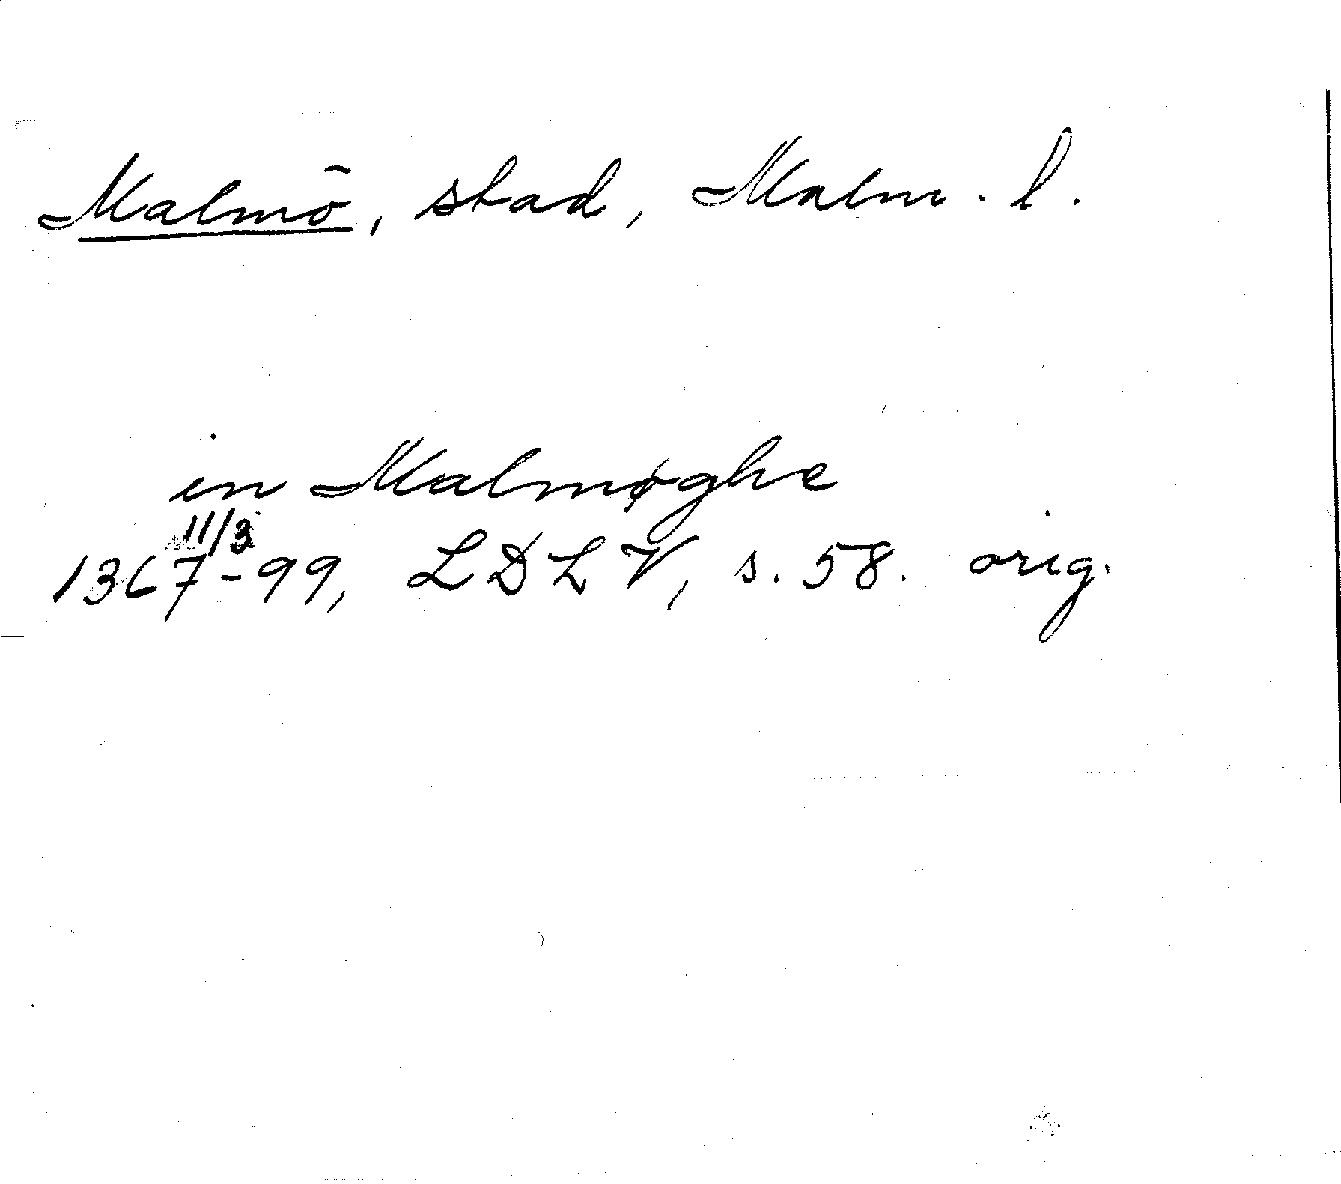 Malmö, stad, Malm. l.
in Malmøghe
11/3
1367-99, LDLV, s. 58. orig.